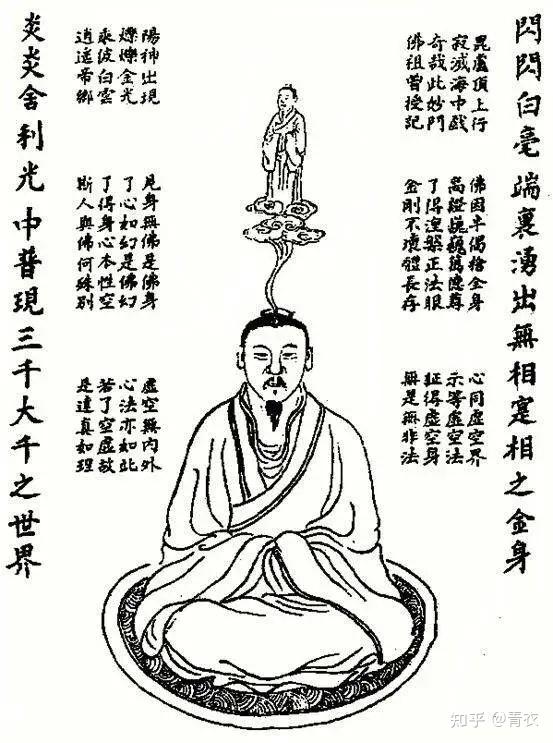 閃閃白毫端裏湧出無相寔相之金身
毘盧頂上行
寂滅海中戲
奇哉此妙門
佛祖曾授記
佛因半偈捨金身
高證巍巍萬德尊
了得涅槃正法眼
金剛不壞體長存
心同虛空界
示等虛空法
証得虛空身
無是無非法
陽神出現
爍爍金光
乘彼白雲
逍遙帝鄉
見身無佛是佛身
了心如幻是佛幻
了得身心本性空
斯人與佛何殊別
虛空無內外
心法亦如此
若了空虛故
是達真如理
炎炎舍利光中普現三千大千之世界
知乎 @青衣